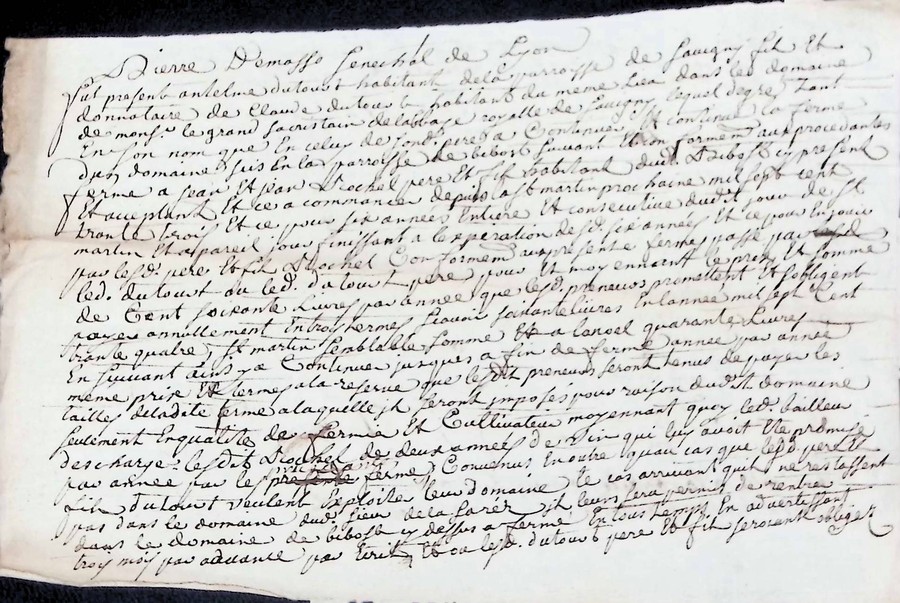 Pierre Demasso Senechal de Lyon
fut present antelme dutoust habitant de la parroisse de Savigny fils Et
donnataire de Claude dutoust habitant du meme Lieu dans led domaine
de monsr le grand Sacristain de labbaye royalle de Savigny lequel degré Tant
En son nom que En celuy de sond. pere a Continué Et continue la ferme
dun domaine sis En la parroisse de bibost suivant Et conformemt aux precedantes
ferme a Jean Et Jean Trochel pere Et fils habitant dud. bibost cy present
Et acceptant Et ce a commancer depuis la St martin prochaine mil sept cent
trante trois Et ce pour six années Entiere Et consecutive dudit jour de St
martin Et a pareil jour finissant a lexpiration desd. six années Et ce pour En jouir
par lesd. pere Et fils Trochel Conformemt aux presente fermes passé par
led. dutoust au led. dutoust pere pour Et moyennant le prix Et somme
de Cent soixante Livres par année que lesd. preneurs promettent Et sobligent
payer annuellement En trois termes scavoir soixante livres En lannée mil sept Cent
trante quatre St martin semblable somme Et a lanoel quarante Livres
En suivant ainsy a Continuer jusques a fin de ferme année par année
meme prix Et termes a la reserve que lesdit preneurs seront tenus de payer les
tailles de ladite ferme a laquelle ils seront imposés pour raison dudit domaine
seulement En qualité de fermie Et Cultivateur moyennant quoy led. bailleur
descharge lesdit Trochel de deux années de vin qui luy avoit Ete promise
par année par les precedante ferme Convenus En outre quau cas que lesd. pere Et
fils dutoust veulent Exploiter leur domaine le cas arrivant quil ne restassent
pas dans le domaine dud. lieu de la il leur sera permis de rentrer
dans le domaine de bibost cy dessus a ferme En tous temps En advertissant
trois mois par advance par Ecrit Et ce lesd. dutoust pere Et fils seroient obligez